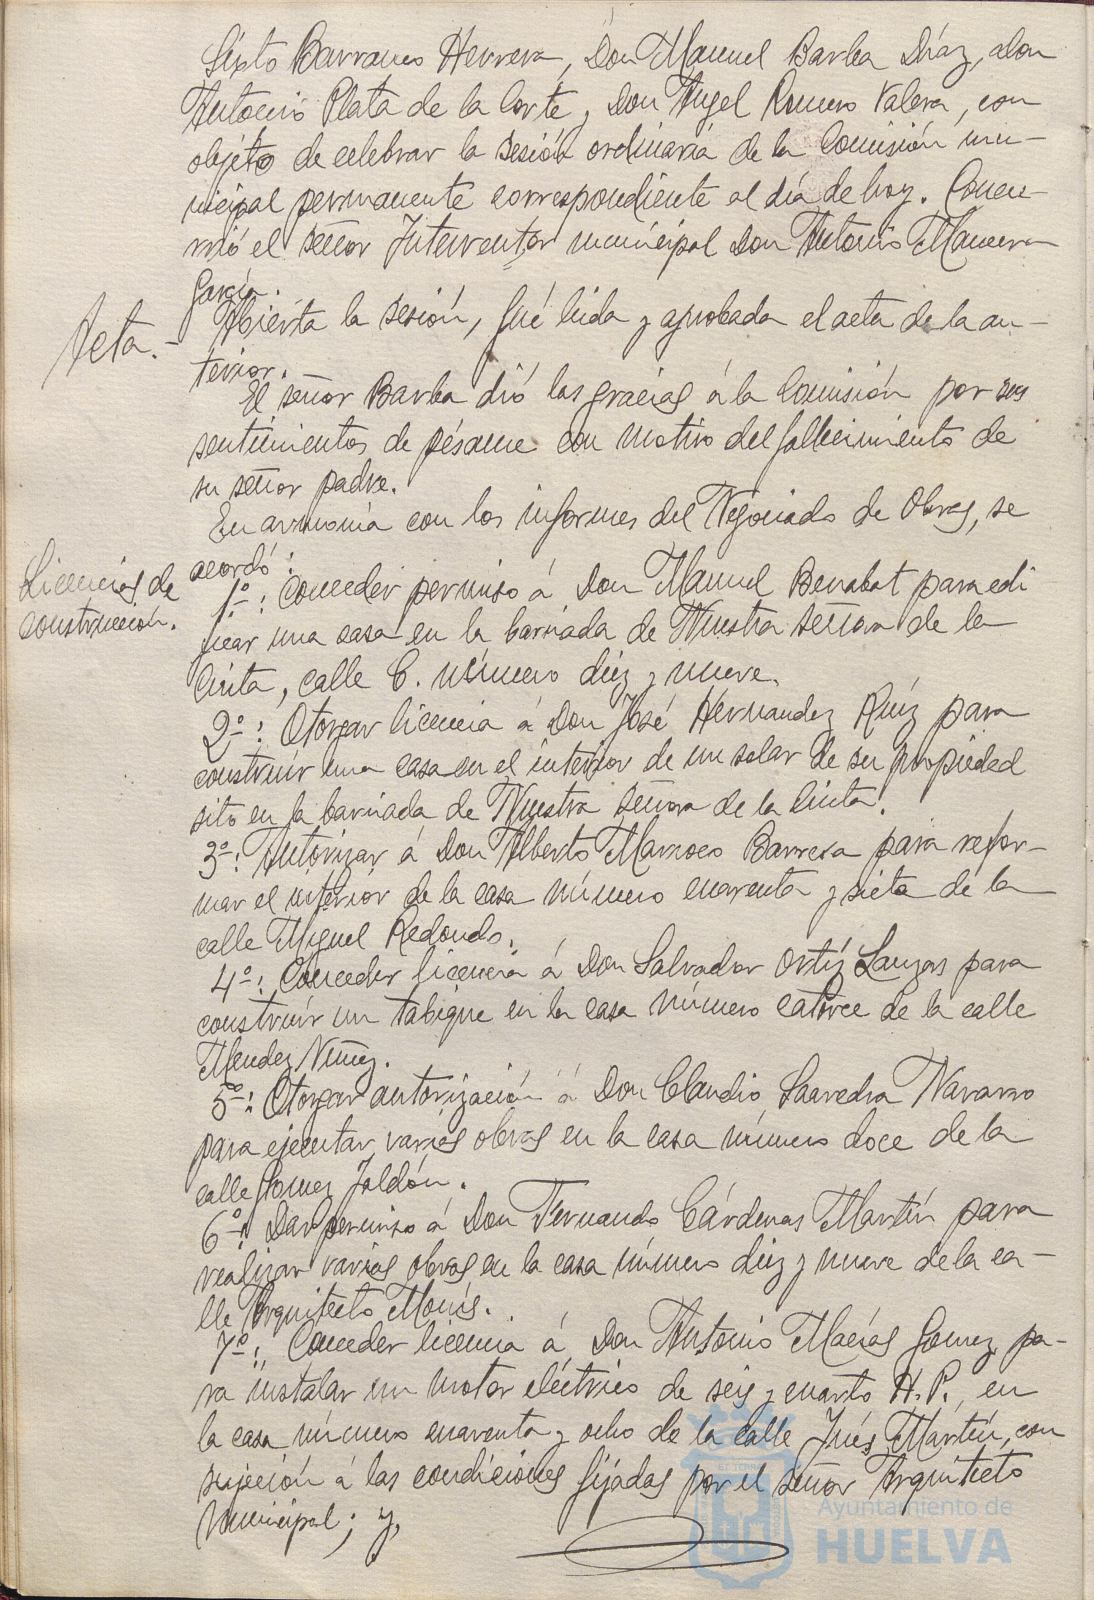 Sixto Barranco Herrera, Don Manuel Barba Díaz, don
Antonio Plata de la Corte y Don Angel Romero Valera, con
objeto de celebrar la sesión ordinaria de la Comisión mu-
nicipal permanente correspondiente al día de hoy. Concu-
rrió el señor Interventor municipal Don Antonio Mancera
García.
Acta.-
Abierta la sesión, fué leida y aprobada el acta de la an-
terior.
El señor Barba dió las gracias á la Comisión por sus
sentimientos de pésame con motivo del fallecimiento de
su señor padre.
En armonía con los informes del Negociado de Obras, se
acordó:
Licencias de
construcción.
1º: Conceder permiso á Don Manuel Benabat para edi
ficar una casa en la barriada de Nuestra señora de la
Cinta, calle C. número diez y nueve.
2º: Otorgar licencia á Don José Hernandez Ruíz para
construir una casa en el interior de un solar de su propiedad
sito en la barriada de Nuestra señora de la Cinta.
3º: Autorizar á Don Alberto Marroco Barrera para refor-
mar el interior de la casa número cuarenta y siete de la
calle Miguel Redondo.
4º: Conceder licencia á Don Salvador Ortíz Lanzas para
construir un tabique en la casa número catorce de la calle
Mendez Nuñez.
5º: Otorgar autorización á Don Claudio Saavedra Navarro
para ejecutar varias obras en la casa número doce de la
calle Gomez Jaldón.
6º: Dar permiso á Don Fernando Cárdenas Martín para
realizar varias obras en la casa número diez y nueve de la ca-
lle Arquitecto Monís.
7º: Conceder licencia á Don Antonio Macías Gomez pa-
ra instalar un motor eléctrico de seis y cuarto H.P. en
la casa número cuarenta y ocho de la calle Inés Martín, con
sujeción á las condiciones fijadas por el señor Arquitecto
Municipal; y,
Ayuntamiento de
HUELVA